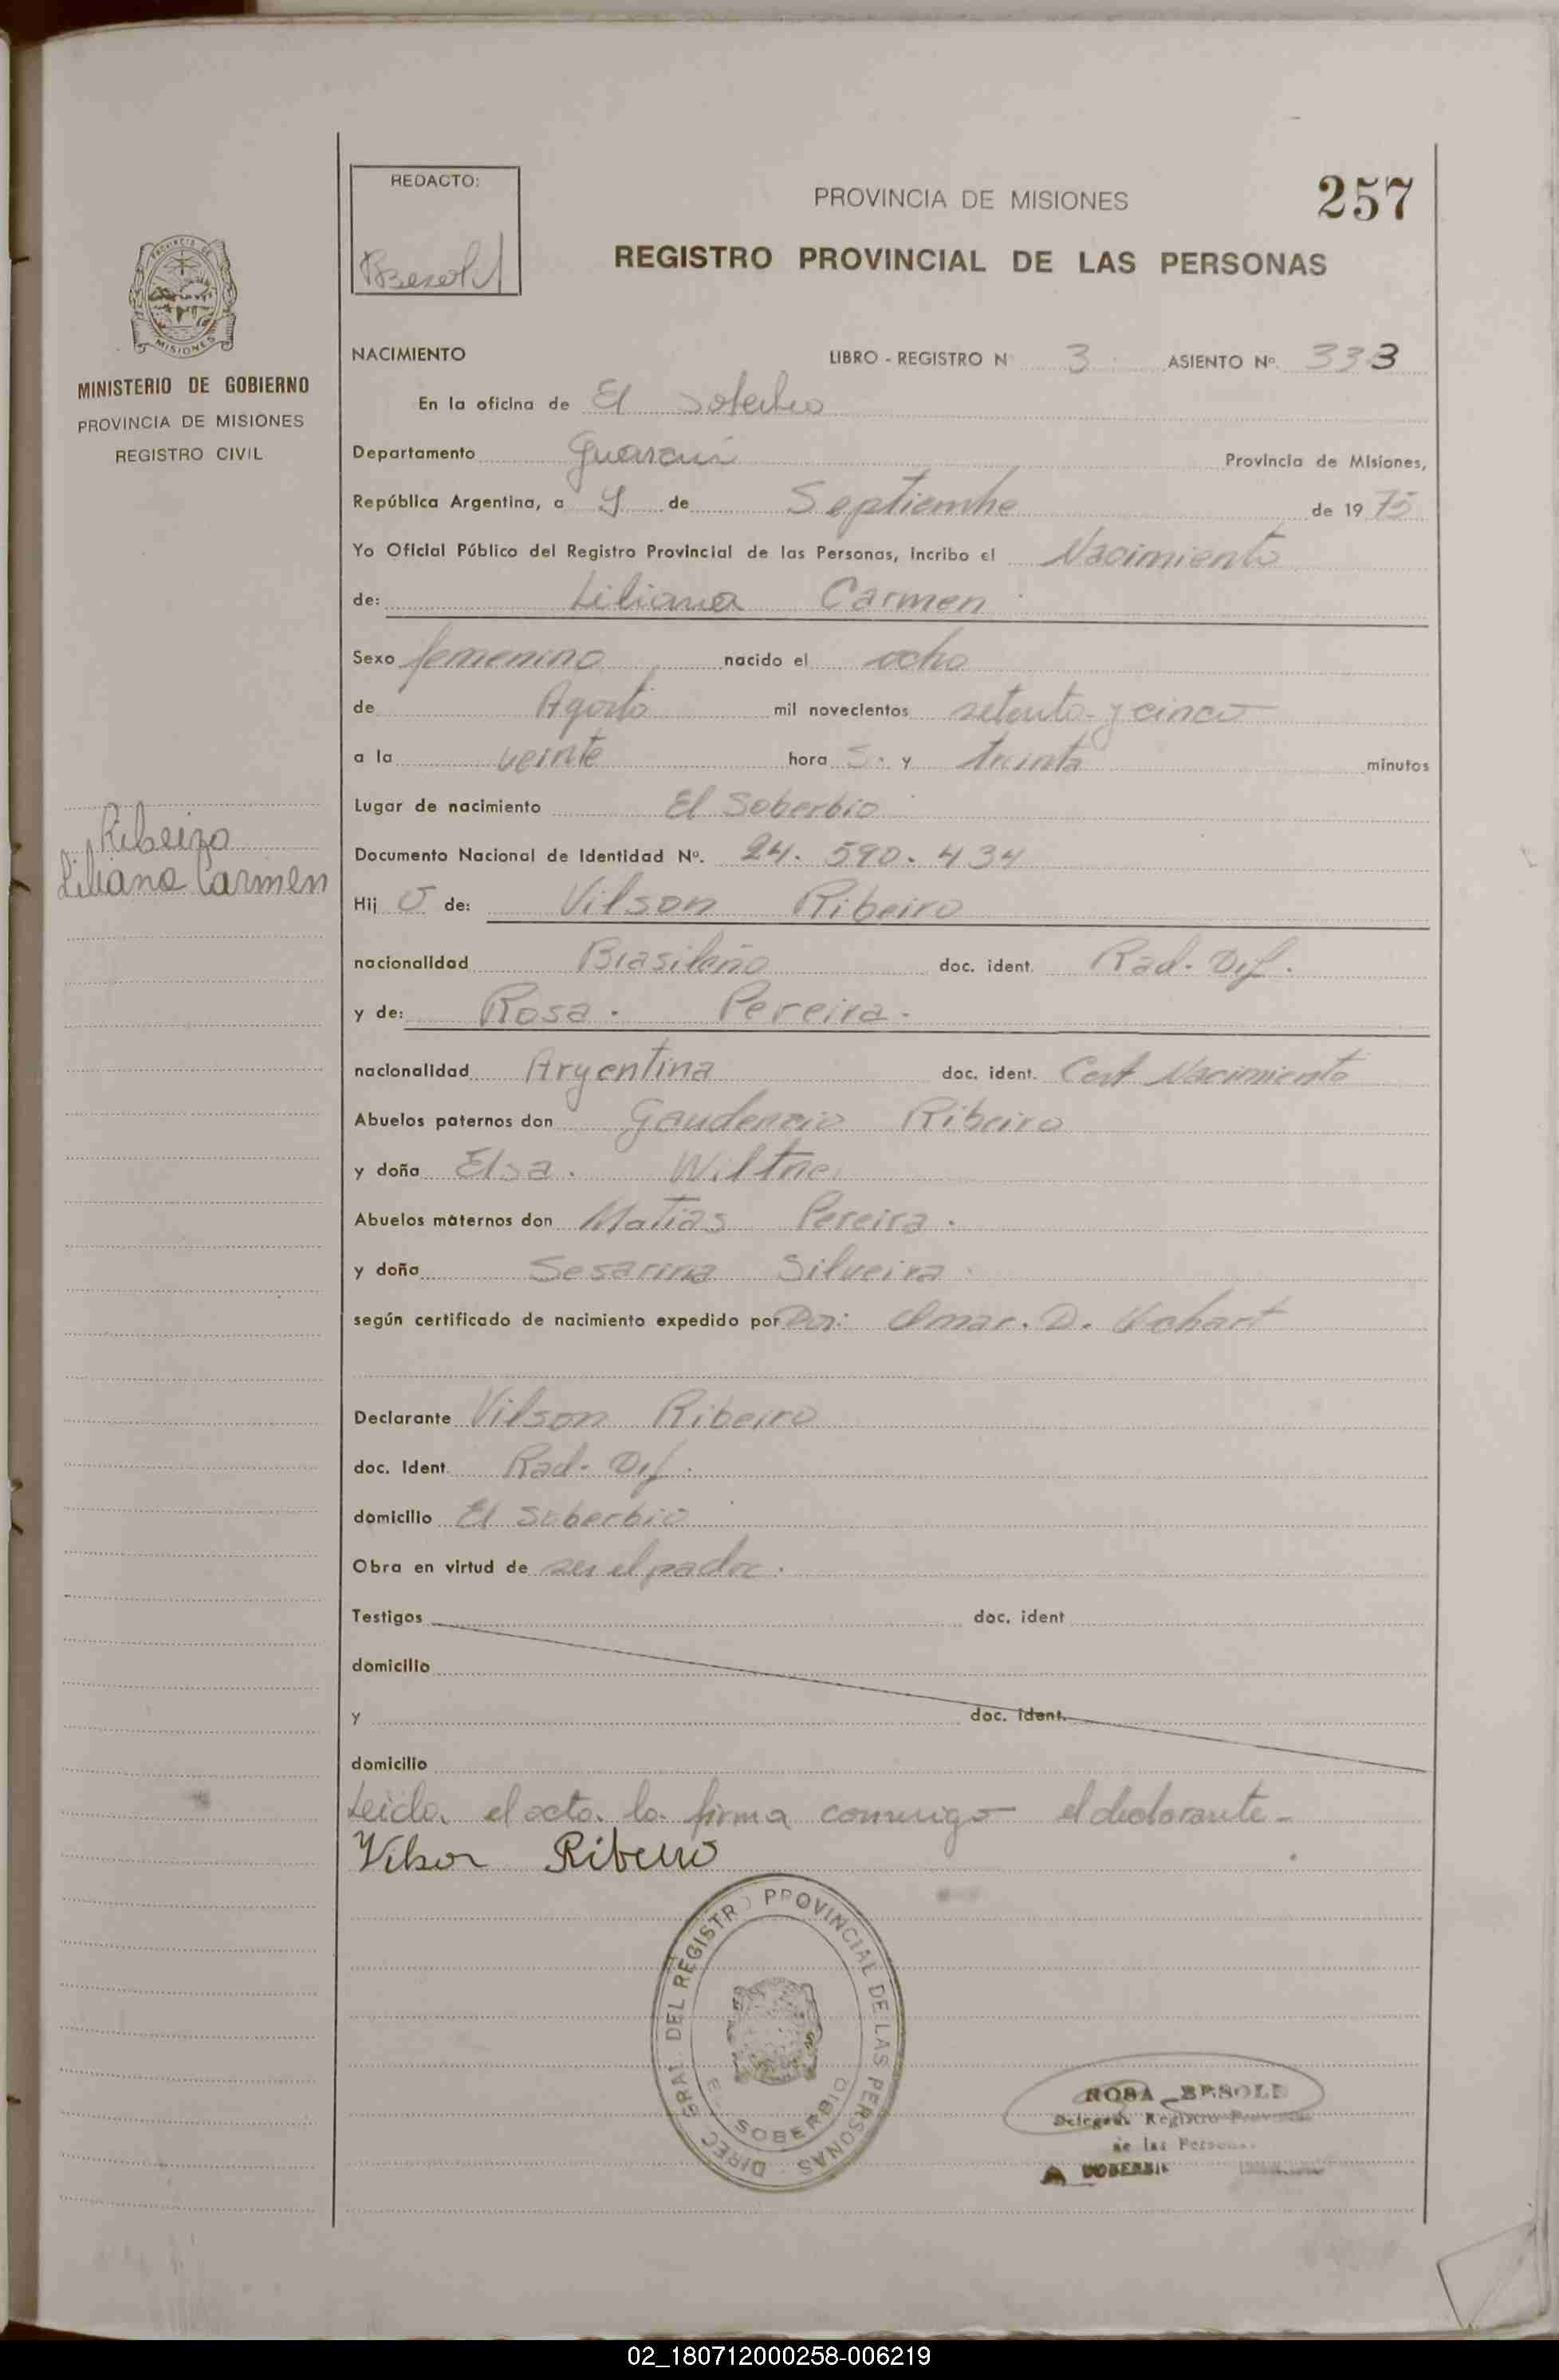 REDACTO:
PROVINCIA DE MISIONES
257
REGISTRO PROVINCIAL DE LAS PERSONAS
MISIONES
MINISTERIO DE GOBIERNO
PROVINCIA DE MISIONES
REGISTRO CIVIL
NACIMIENTO LIBRO - REGISTRO N 3 ASIENTO Nº. 333
En la oficina de El Soberbio
Departamento Guaraní Provincia de Misiones,
República Argentina, a 9 de Septiembre de 1975
Yo Oficial Público del Registro Provincial de las Personas, incribo el Nacimiento
de: Liliana Carmen
Sexo femenino nacido el ocho
de Agosto mil novecientos setenta y cinco
a la veinte hora s. y treinta minutos
Lugar de nacimiento El Soberbio
Ribeiro
Liliana Carmen
Documento Nacional de Identidad Nº. 24. 590. 434
Hij de: Vilson Ribeiro
nacionalidad Brasileño doc. ident. Rad. Def.
y de: Rosa. Pereira.
nacionalidad Argentina doc. ident. Cert Nacimiento
Abuelos paternos don Gaudencio Ribeiro
y doña Elsa.
Abuelos maternos don Matias Pereira.
y doña Sesarina Silveira
según certificado de nacimiento expedido por Omar. D.
Declarante Vilson Ribeiro
doc. Ident. Rad. Def.
domicilio El Soberbio
Obra en virtud de ser el padre.
Testigos doc. ident
domicilio
y doc. ident.
domicilio
Leida el acta la firma conmigo el declarante -
Vilson Ribeiro
DIREC GRAL DEL REGISTRO PROVINCIAL DE LAS PERSONAS
SOBERBIO
ROSA BESOLD
de las
02_180712000258-006219